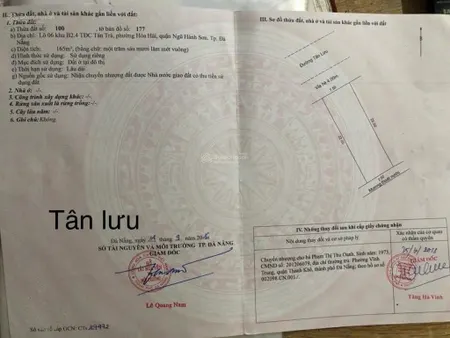 II. Thửa đất, nhà ở và tài sản khác gắn liền với đất:
1. Thửa đất:
a) Thửa đất số: 100 tờ bản đồ số: 177
b) Địa chỉ: Lô 06 khu B2.4 TDC Tân Trà, phường Hòa Hải, quận Ngũ Hành Sơn, Tp. Đà
Nẵng
c) Diện tích: 165m², (bằng chữ: một trăm sáu mươi lăm mét vuông)
d) Hình thức sử dụng: Sử dụng riêng
đ) Mục đích sử dụng: Đất ở tại đô thị
e) Thời hạn sử dụng: Lâu dài
g) Nguồn gốc sử dụng: Nhận chuyển nhượng đất được Nhà nước giao đất có thu tiền sử
dụng đất
2. Nhà ở: -/-
3. Công trình xây dựng khác: -/-
4. Rừng sản xuất là rừng trồng: -/-
5. Cây lâu năm: -/-
6. Ghi chú: Không.
Tân lưu
Đà Nẵng, ngày tháng năm
SỞ TÀI NGUYÊN VÀ MÔI TRƯỜNG TP. ĐÀ NẴNG
GIÁM ĐỐC
Lê Quang Nam
Số vào sổ cấp GCN:
III. Sơ đồ thửa đất, nhà ở và tài sản khác gắn liền với đất:
Đường Tân Lưu
Vỉa hè
Mương
IV. Những thay đổi sau khi cấp giấy chứng nhận
Nội dung thay đổi và cơ sở pháp lý
Xác nhận của cơ quan
có thẩm quyền
Chuyển nhượng cho bà Phạm Thị Thu Oanh, Sinh năm: 1973,
CMND số: 201206079, địa chỉ thường trú: Phường Vĩnh
Trung, quận Thanh Khê, thành phố Đà Nẵng; theo hồ sơ số
GIÁM ĐỐC
Tăng Hà Vinh